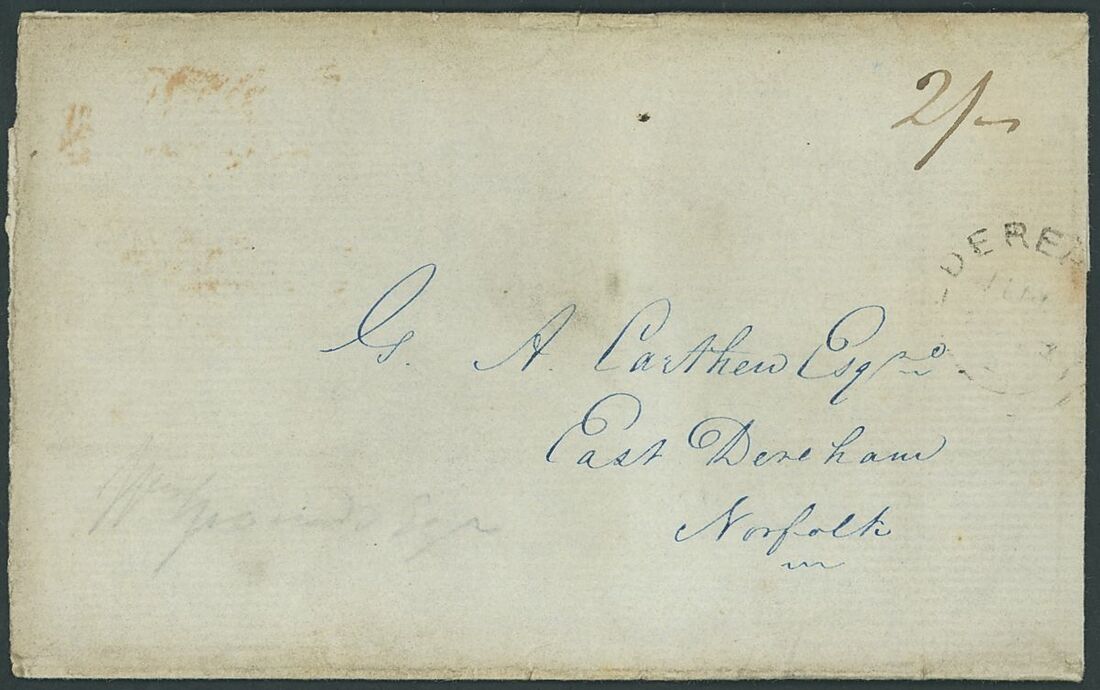 2/-
DEREH
G. A. Carthew Esqre
East Dereham
Norfolk
Esqr